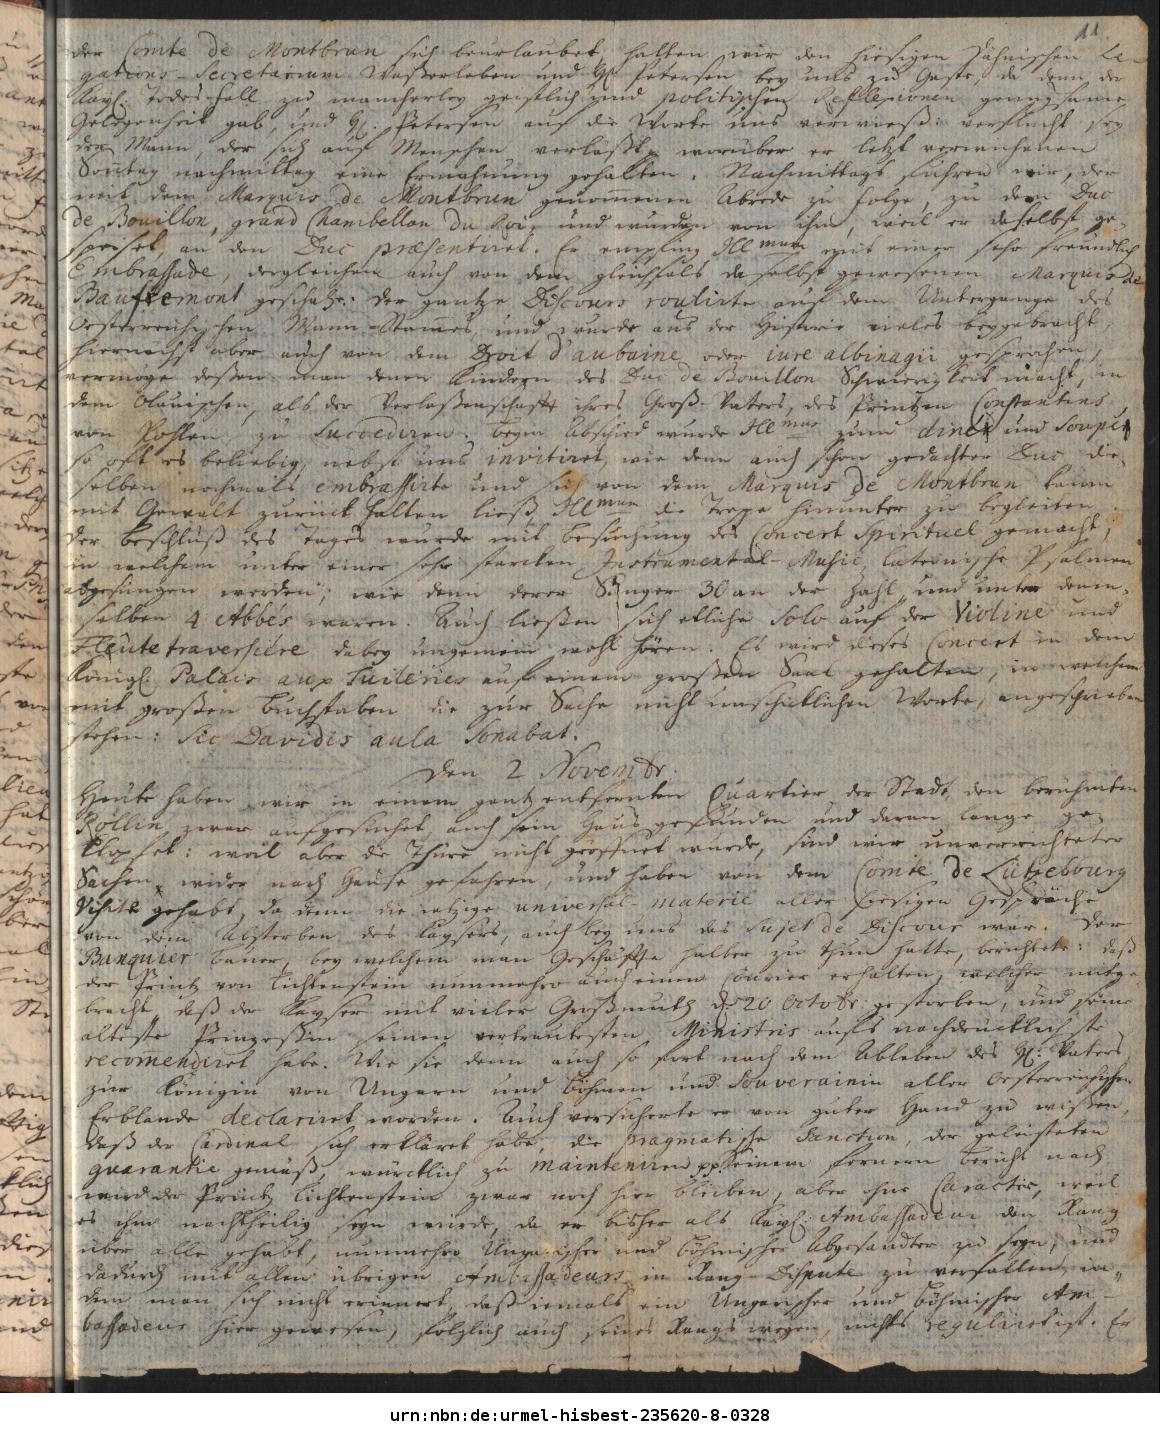 11.
der Comte de Montbrun sich beurlaubet, hatten wir den hiesigen Dähnischen Le-
gations-Secretarium Waßerleben und H. Petersen bey uns zu Gaste, da denn der
Kayß. Todes-Fall zu mancherley geistlich und politischen Reflexionen genugsame
Gelegenheit gab, und H. Petersen auf die Worte uns verwieß: verflucht sey
der Mann, der sich auf Menschen verläßt, worüber er letzt verwichenen
Sontag nachmittag eine Ermahnung gehalten. Nachmittags fuhren wir, der
mit dem Marquis de Montbrun genommenen Abrede zu folge, zu dem Duc
de Bouillon, grand Chambellan du Roi, und wurden von ihm, weil er daselbst ge-
speiset, an den Duc præsentiret. Er empfing Illmum mit einer sehr freundlich
Embrassade, dergleichen auch von dem gleichfals daselbst gewesenen Marquis de
Bauffremont geschahe. der gantze Discours roulirte auf dem Untergange des
Oesterreichischen Mann-Stames, und wurde aus der Historie vieles beygebracht,
hiernächst aber auch von dem Droit d'aubaine oder iure albinagii gesprochen,
vermöge deßen man denen Kindern des Duc de Bouillon Schwierigkeit macht, in
dem Olauischen, als der Verlaßenschafft ihres Groß-Vaters, des Printzen Constantins
von Pohlen zu succediren. Beym Abschied wurde Illmus zum diner und Souper
so oft es beliebig, nebst uns invitiret, wie denn auch schon gedachter Duc die-
selben nochmals embrassirte und sich von dem Marquis de Montbrun kaum
mit Gewalt zurück halten ließ, Illmum die Trepe hinunter zu begleiten.
der Beschluß des Tages wurde mit Besuchung des Concert Spirituel gemacht,
in welchem unter einer sehr starcken Instrumental-Music, lateinische Psalmen
abgesungen werden; wie denn derer Sänger 30 an der Zahl, und unter den-
selben 4 Abbés waren. Auch ließen sich etliche Solo auf der Violine und
Fleute traversiére dabey ungemein wohl hören. Es wird dieses Concert in dem
Königl. Palais aux Tuileries auf einem großen Saal gehalten, in welchem
mit großen Buchstaben die zur Sache nicht unschicklichen Worte, angeschrieben
stehen: Sic Davidis aula Sonabat.
Den 2 Novembr.
Heute haben wir in einem gantz entfernten Quartier der Stadt, den berühmten
Rollin, zwar aufgesuchet, auch sein Hauß gefunden und daran lange ge-
klopfet: weil aber die Thüre nicht geöffnet wurde, sind wir unverrichteter
Sachen wieder nach Hause gefahren, und haben von dem Comte de Lützebourg
Visite gehabt, da denn die ietzige universal-materie aller hiesigen Gespräche
von dem Absterben des Kaysers, auch bey uns das Sujet de Discour war. Der
Banquier Bauer, bey welchem man Geschäffte halber zu thun hatte, berichtete: daß
der Printz von Lichtenstein nunmehro auch einen Courier erhalten, welcher mitge-
bracht, daß der Kayser mit vieler Großmuth d. 20 Octobr. gestorben, und seine
älteste Prinzeßin seinen vertrautesten Ministris aufs nachdrücklichste
recomendiret habe. Wie sie denn auch so fort nach dem Ableben des H. Vaters
zur Königin von Ungarn und Böhmen und Souverainin aller Oesterreichischen
Erblande declariret worden. Auch versicherte er von guter Hand zu wißen,
daß der Cardinal sich erkläret habe, die pragmatische Sanction, der geleisteten
guarantie gemäß, würcklich zu mainteniren pp. Seinem fernern Bericht nach
wird der Printz Lichtenstein zwar noch hier bleiben, aber ohne Caracter, weil
es ihm nachtheilig seyn würde, da er bisher als Kayß. Ambassadeur den Rang
über alle gehabt, nunmehro Ungarischer und Böhmischer Abgesandter zu seyn, und
dadurch mit allen übrigen Ambassadeurs in Rang-Dispute zu verfallen, in-
dem man sich nicht erinnert, daß iemals ein Ungarischer und Böhmischer Am-
bassadeur hier gewesen, folglich auch seines Rangs wegen, nichts reguliret ist. Er
urn:nbn:de:urmel-hisbest-235620-8-0328